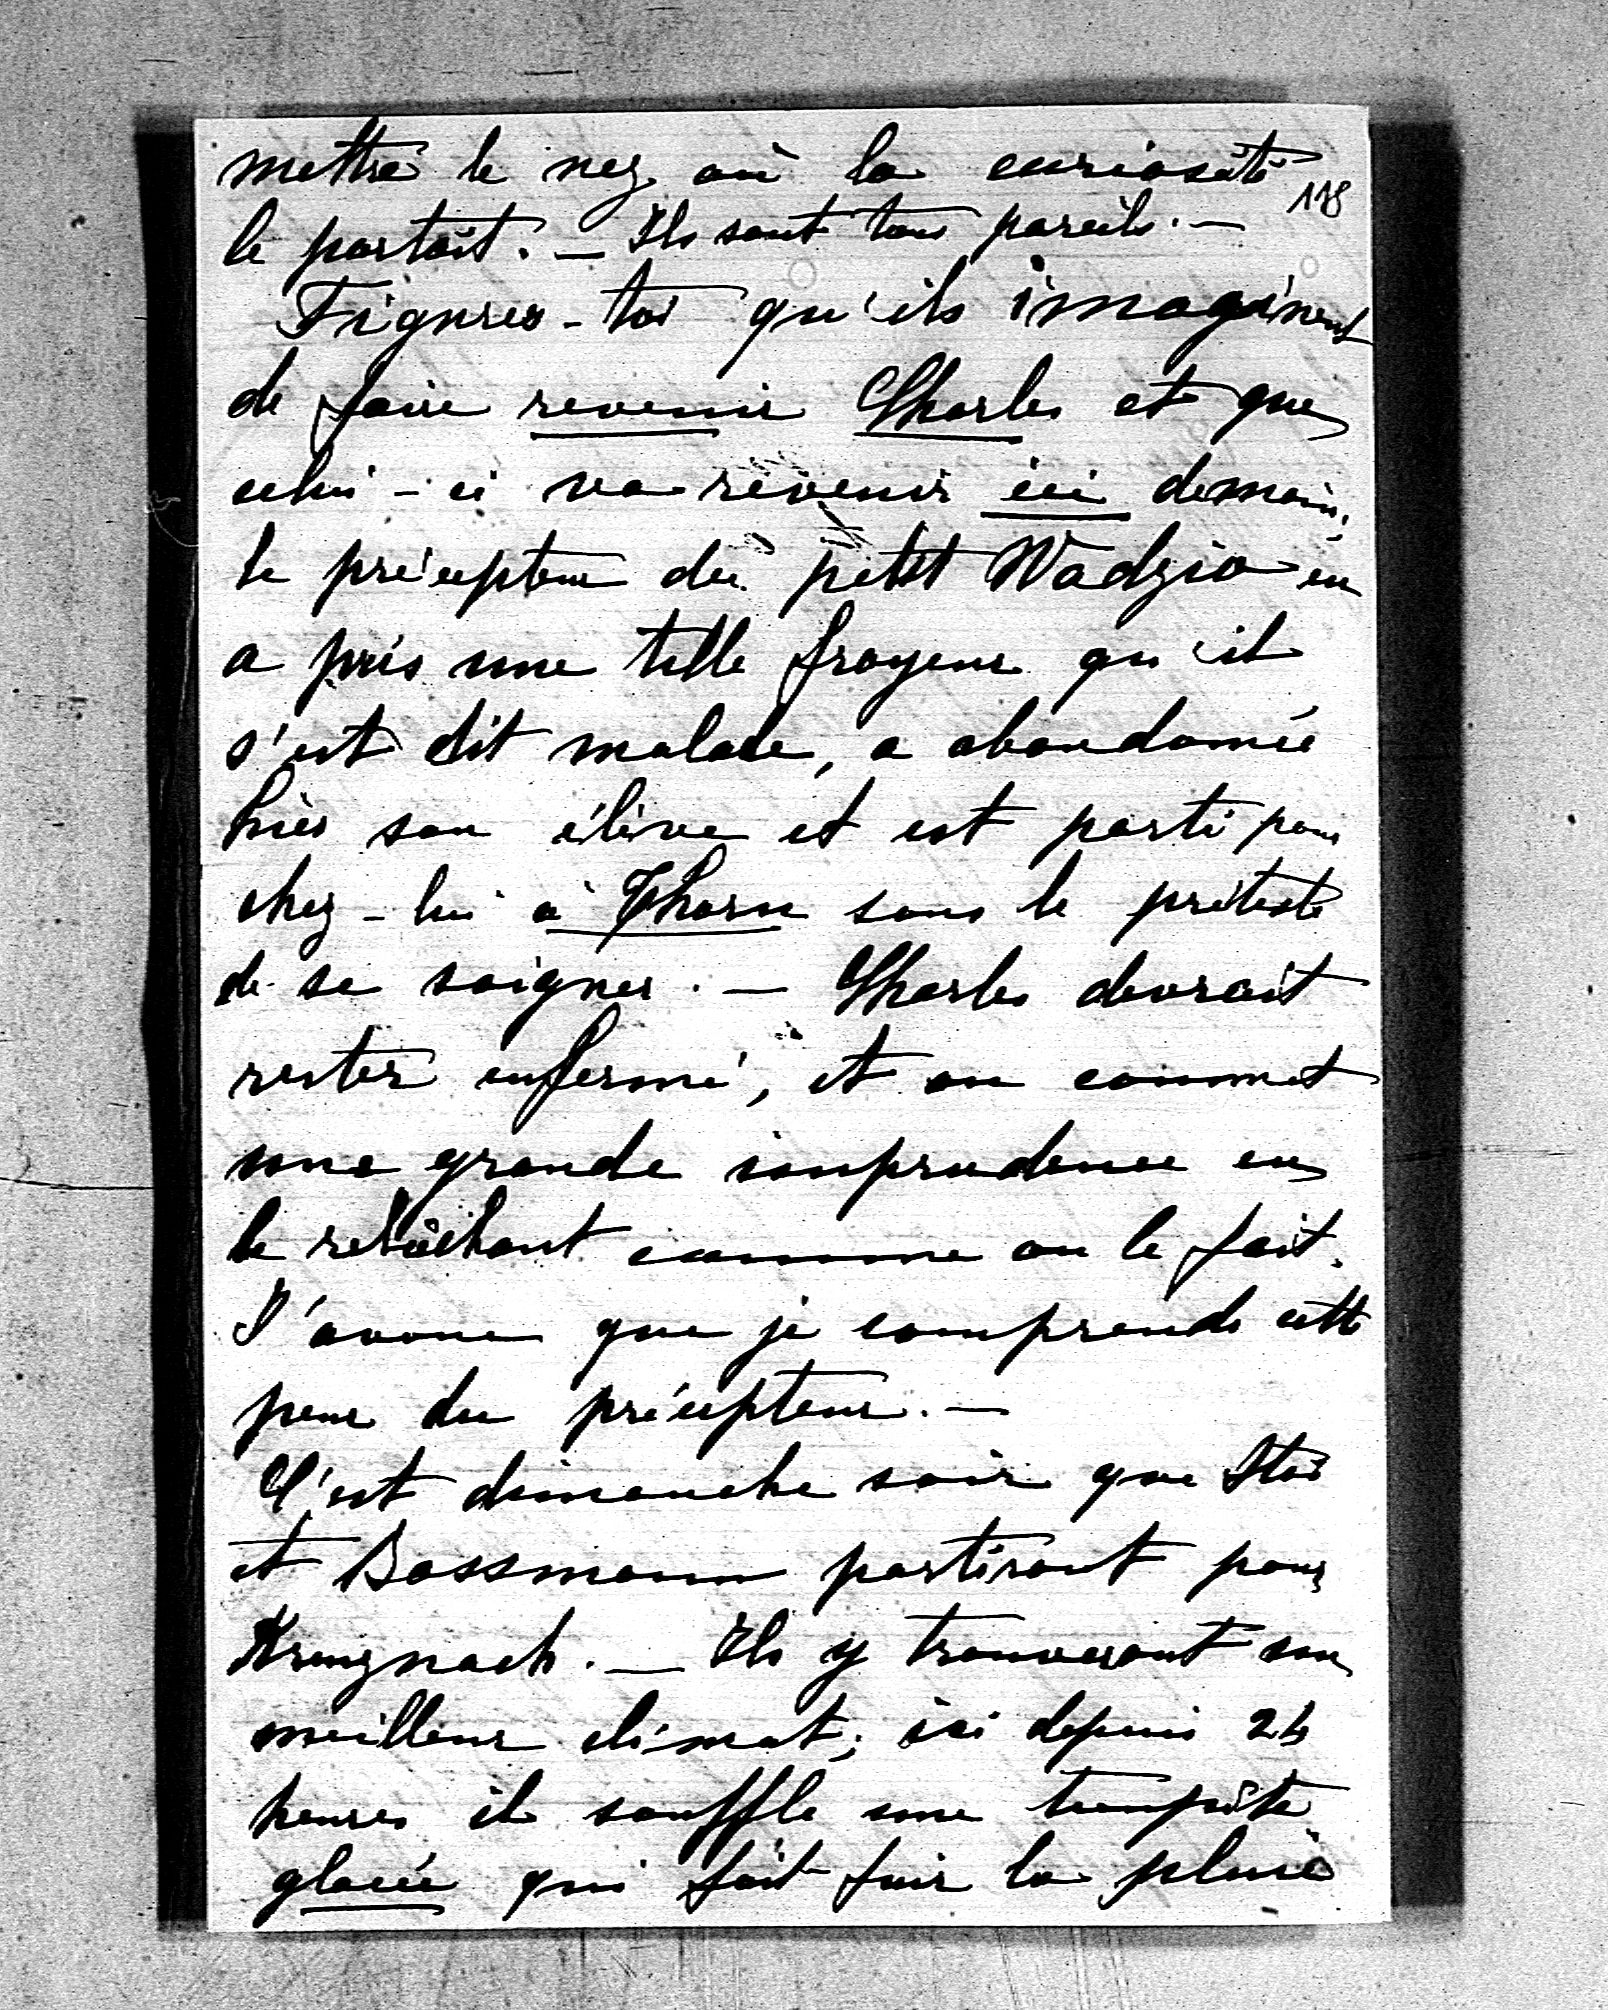 mettre le nez où la curiosité
118
le portait. — Ils sont tous pareils. —
Figures-toi qu'ils imaginent
de faire revenir Charles et que
celui-ci va revenir ici demain;
le précepteur du petit Wadzio en
a pris une telle frayeur qu'il
s'est dit malade, a abandonné
hier son élève et est parti pour
chez-lui à Thorn sous le prétexte
de se soigner. — Charles devrait
rester enfermé, et on commet
une grande imprudence en
le relâchant comme on le fait.
J'avoue que je comprends cette
peur du précepteur. —
C'est dimanche soir que Stas
et Bassmann partiront pour
Kreuznach. — Ils y trouveront un
meilleur climat; ici depuis 24
heures il souffle une tempête
glacée qui fait fuir la pluie